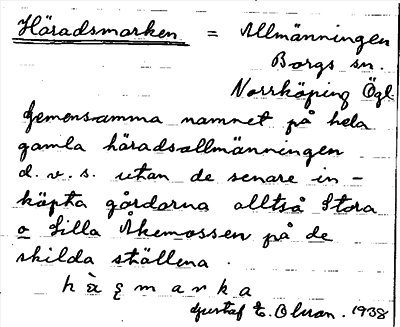 Häradsmarken = Allmänningen
Borgs sn.
Norrköping Ögl
Gemensamma namnet på hela
gamla häradsallmänningen
d. v. s. utan de senare in-
köpta gårdarna alltså Stora
o Lilla Åkemossen på de
skilda ställena.
Gustaf E. Olsson. 1938